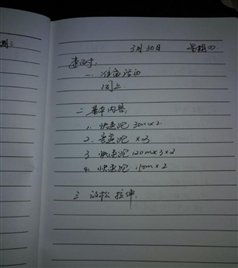 3月30日 星期四
一、准备活动
同上
二、基本内容
1. 快速跑 30m×2
2. ×3
3. 快速跑 120m×3×2
4. 快速跑 150m×2
三、放松 拉伸